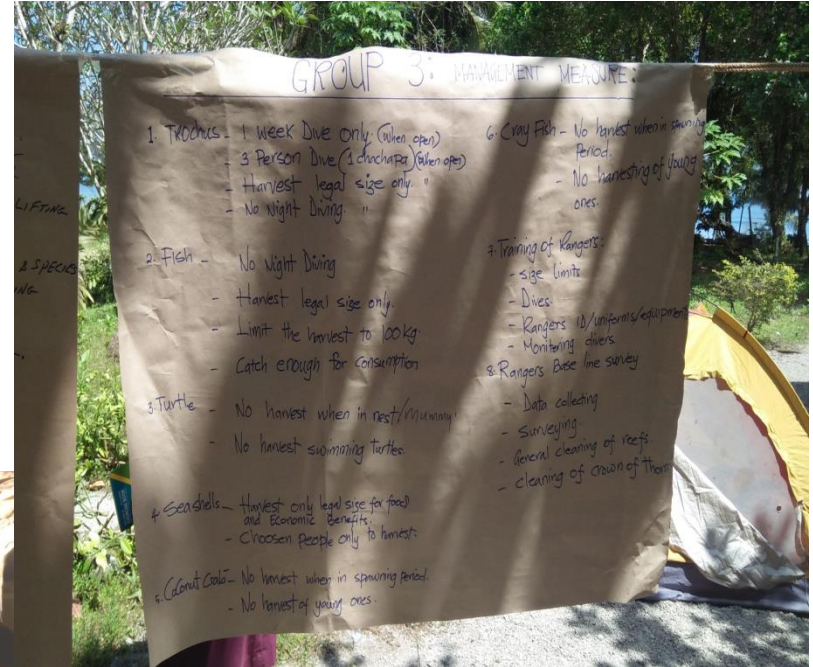 LIFTING
& SPECIES
GROUP 3: MANAGEMENT MEASURE:
1. Trochus - 1 week Dive only. (when open)
- 3 Person Dive (1 chachapa) (when open)
- Harvest legal size only. "
- No Night Diving. "
2. Fish - No Night Diving
- Harvest legal size only.
- Limit the harvest to 100kg.
- Catch enough for consumption
3. Turtle - No harvest when in nest/mummy.
- No harvest swimming Turtles.
4. Seashells - Harvest only legal size for food
and Economic Benefits.
- Choosen People only to harvest.
5. Coconut Crab - No harvest when in spawning period.
- No harvest of young ones.
6. Cray Fish - No harvest when in spawning
Period.
- No harvesting of young
ones.
7. Training of Rangers:
- size limits
- Dives.
- Rangers ID/uniforms/equipment
- Monitoring divers.
8. Rangers Base line survey
- Data collecting
- Surveying.
- General cleaning of reefs.
- cleaning of crown of Thorns